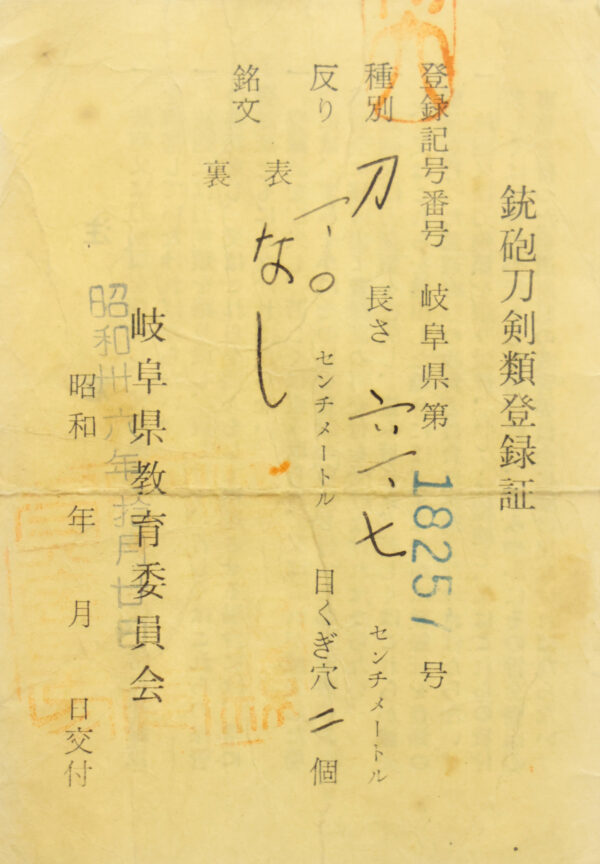 銃砲刀剣類登録証
登録記号番号 岐阜県第18257号
種別 刀 長さ 六一、七 センチメートル
反り 一、〇 センチメートル 目くぎ穴 二 個
銘文 表 なし
裏
岐阜県教育委員会
昭和卅六年拾月廿日
昭和 年 月 日交付